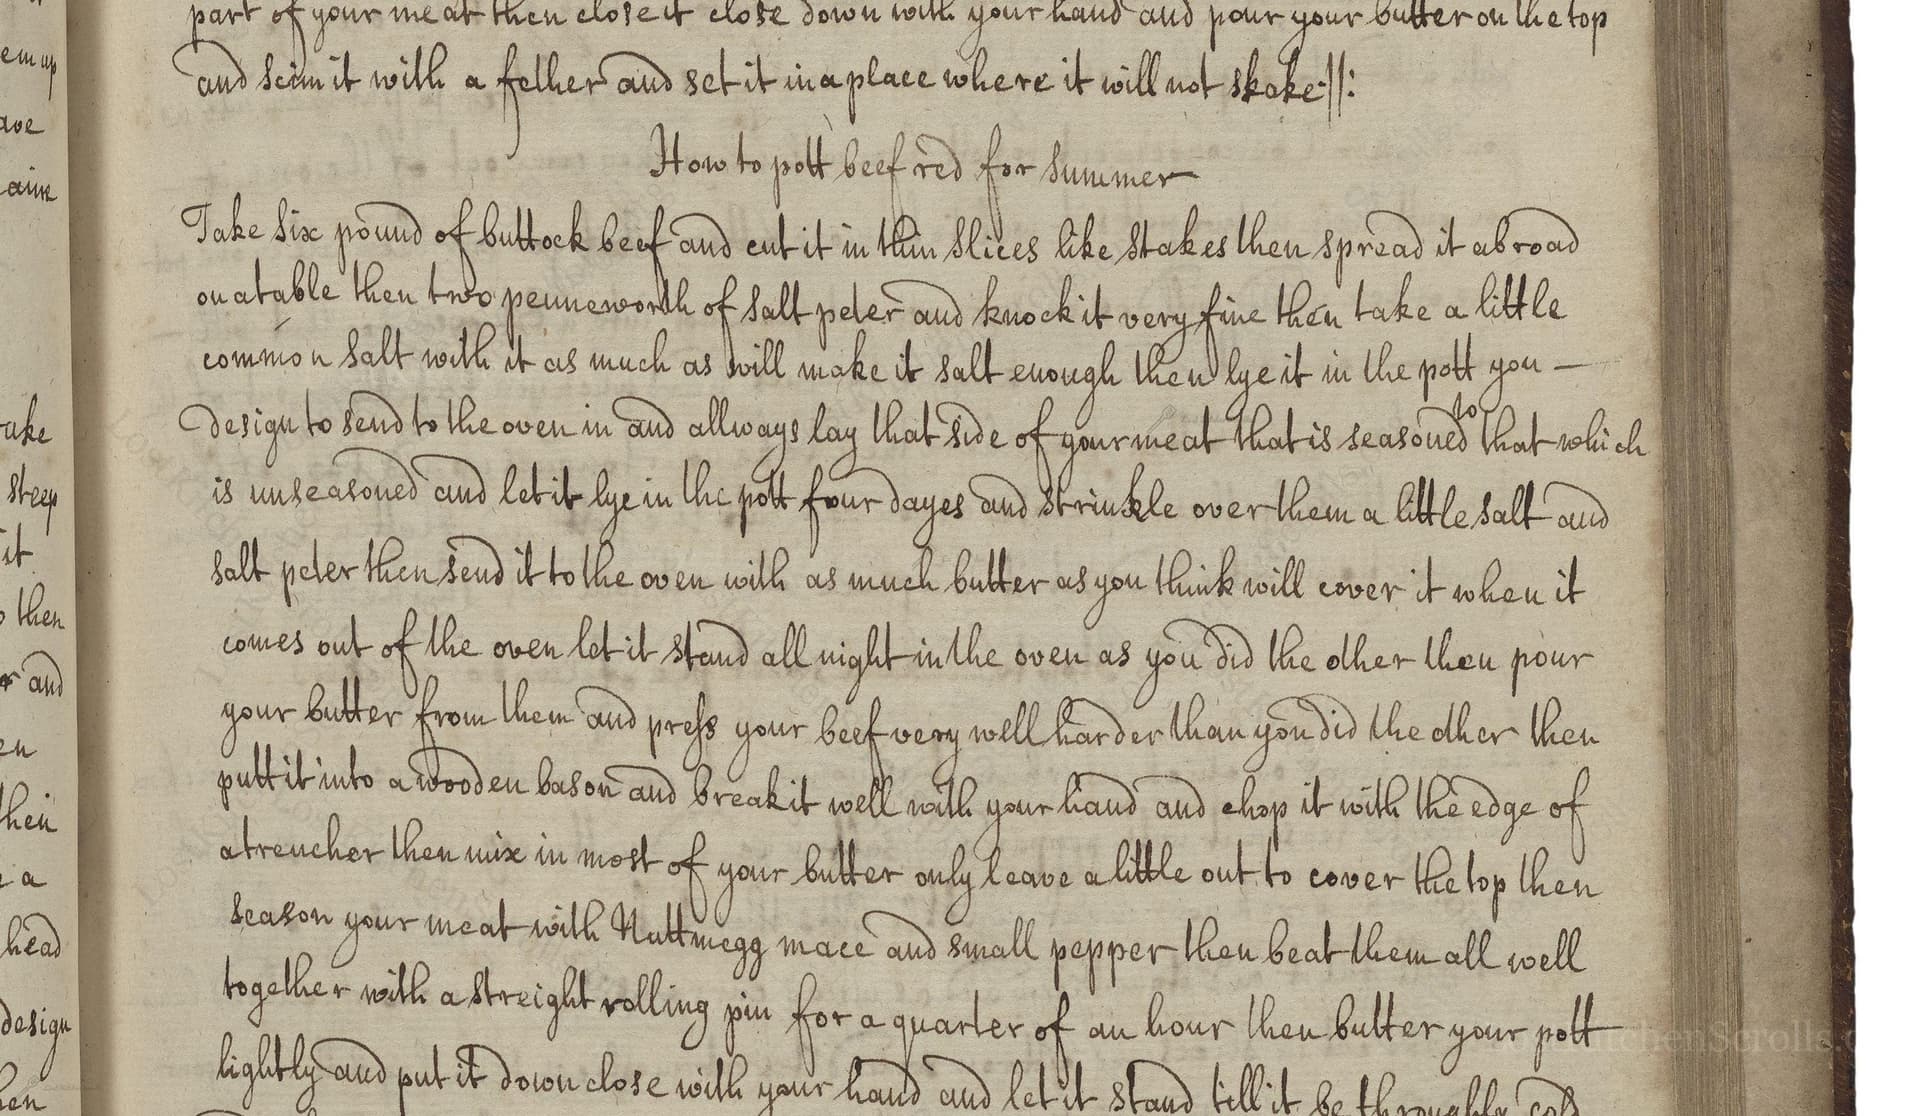 part of your meat then close it close down with your hand and pour your butter on the top
and scim it with a fether and set it in a place where it will not shake://:
How to pott beef red for summer
Take six pound of buttock beef and cut it in thin slices like stakes then spread it abroad
on a table then two penneworth of salt peter and knock it very fine then take a little
common salt with it as much as will make it salt enough then lye it in the pott you —
design to send to the oven in and allways lay that side of your meat that is seasoned to that which
is unseasoned and let it lye in the pott four dayes and strinkle over them a little salt and
salt peter then send it to the oven with as much butter as you think will cover it when it
comes out of the oven let it stand all night in the oven as you did the other then pour
your butter from them and press your beef very well harder than you did the other then
putt it into a wooden bason and break it well with your hand and chop it with the edge of
a trencher then mix in most of your butter only leave a little out to cover the top then
season your meat with Nuttmegg mace and small pepper then beat them all well
together with a streight rolling pin for a quarter of an hour then butter your pott
lightly and put it down close with your hand and let it stand till it be throughly cold
em up
ave
aine
take
steep
it
then
and
en
then
a
head
design
hen
KitchenScrolls.c